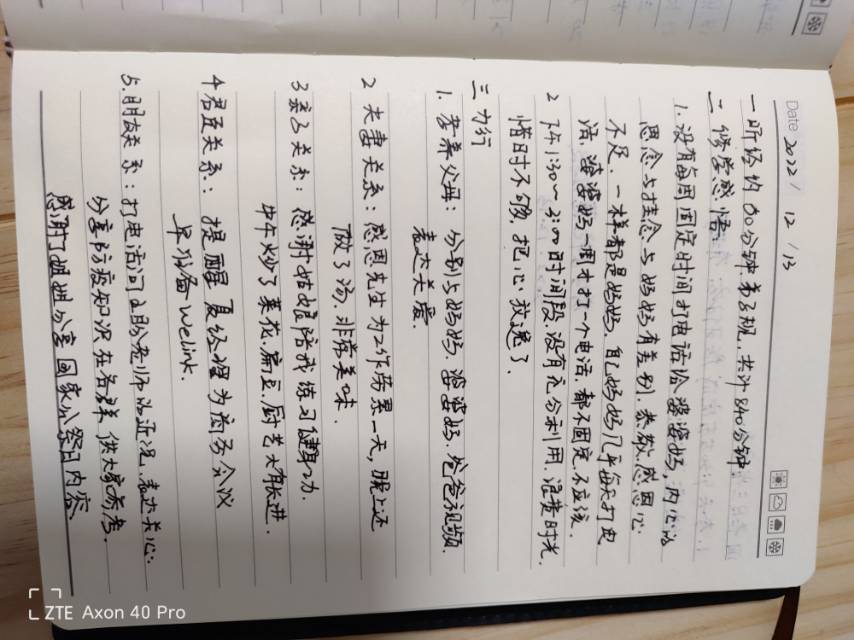 Date 2022/ 12 /13
一 听经约60分钟 第3班. 共计840分钟.
二 修学感悟
1. 没有每周固定时间打电话给婆婆妈, 内心的
思念与挂念与妈妈有差别. 恭敬感恩心
不足. 一样都是妈妈. 自己妈妈几乎每天打电
话. 婆婆妈一周才打一个电话. 都不固定. 不应该.
2 下午1:30~2:00时间段. 没有充分利用. 浪费时光.
惜时不够. 把心放逸了.
三 力行
1. 孝养父母: 分别与妈妈. 婆婆妈. 爸爸视频.
表达关爱.
2 夫妻关系: 感恩先生为工作劳累一天, 晚上还
做了汤, 非常美味.
3 亲子关系: 感谢姑娘陪我练习健身功.
中午炒了菜花. 扁豆. 厨艺大有长进.
4 君臣关系: 提醒夏经理为商务会议
早准备welink.
5. 朋友关系: 打电话问王盼老师的近况. 表达关心.
分享防疫知识在各群 供大家参考.
感谢丁姐姐分享 国家公祭日内容.
ZTE Axon 40 Pro